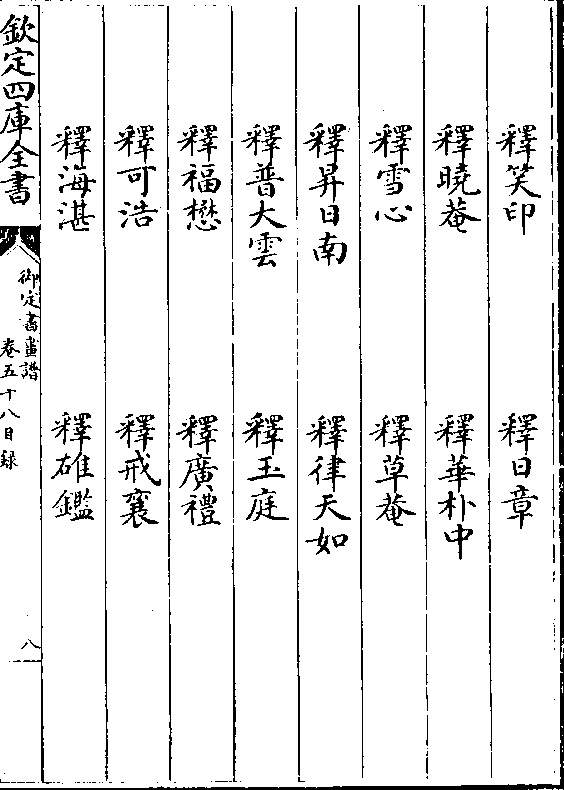 釋笑印　釋日章
釋曉菴　釋華朴中
釋雪心　釋草菴
釋昇日南　釋律天如
釋普大雲　釋玉庭
釋福懋　釋廣禮
釋可浩　釋戒襄
釋海湛　釋碓鑑
欽定四庫全書
御定書畫譜
卷五十八目録
八